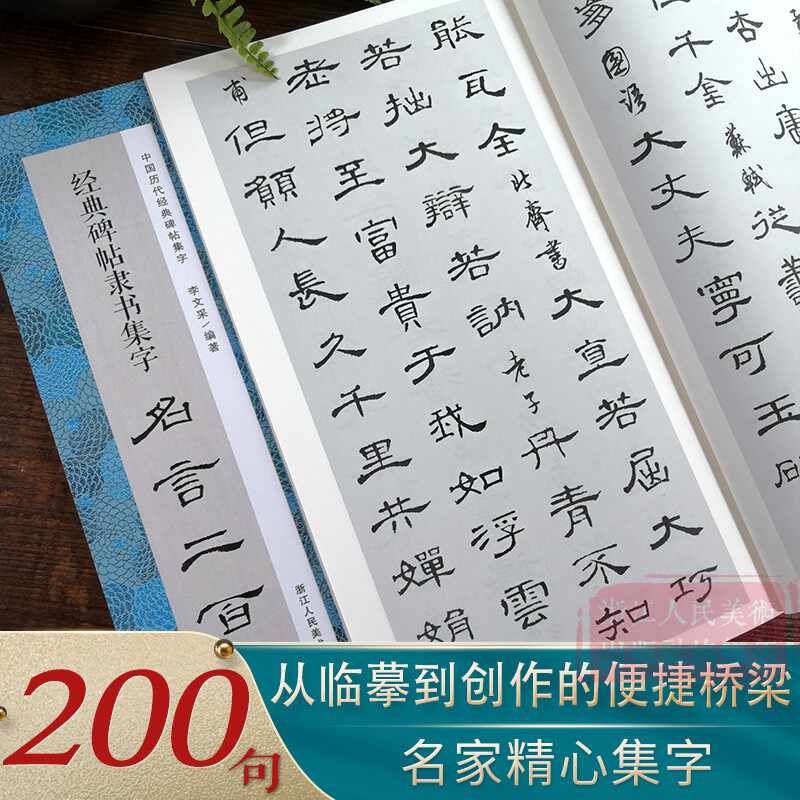 大丈夫寧可玉
能瓦全 北齊書 大直若屈大巧
若拙大辯若訥 老子 丹青不知
老將至富貴于我如浮雲
甫 但願人長久千里共嬋娟
中国历代经典碑帖集字
李文采/编著
经典碑帖隶书集字
名言二百
浙江人民美
200句
从临摹到创作的便捷桥梁
名家精心集字